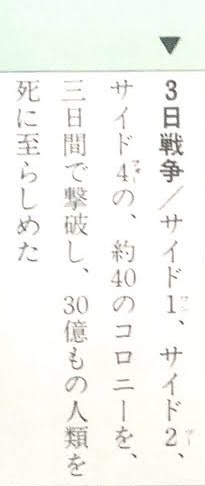 ▼
3日戦争／サイド1、サイド2、
サイド4の、約40のコロニーを、
三日間で撃破し、30億もの人類を
死に至らしめた